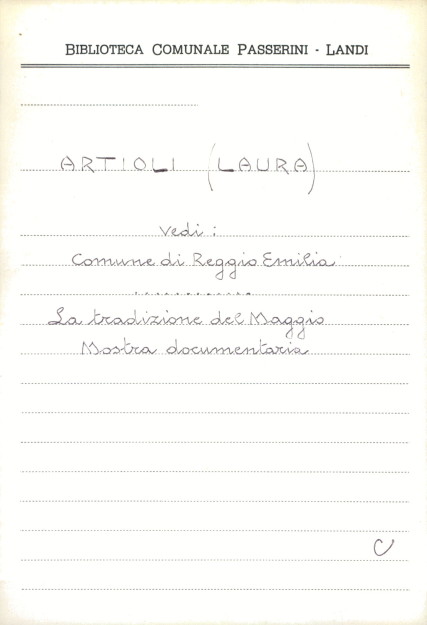 BIBLIOTECA COMUNALE PASSERINI - LANDI
ARTIOLI (LAURA)
Vedi :
Comune di Reggio Emilia
............
La tradizione del Maggio
Mostra documentaria
C